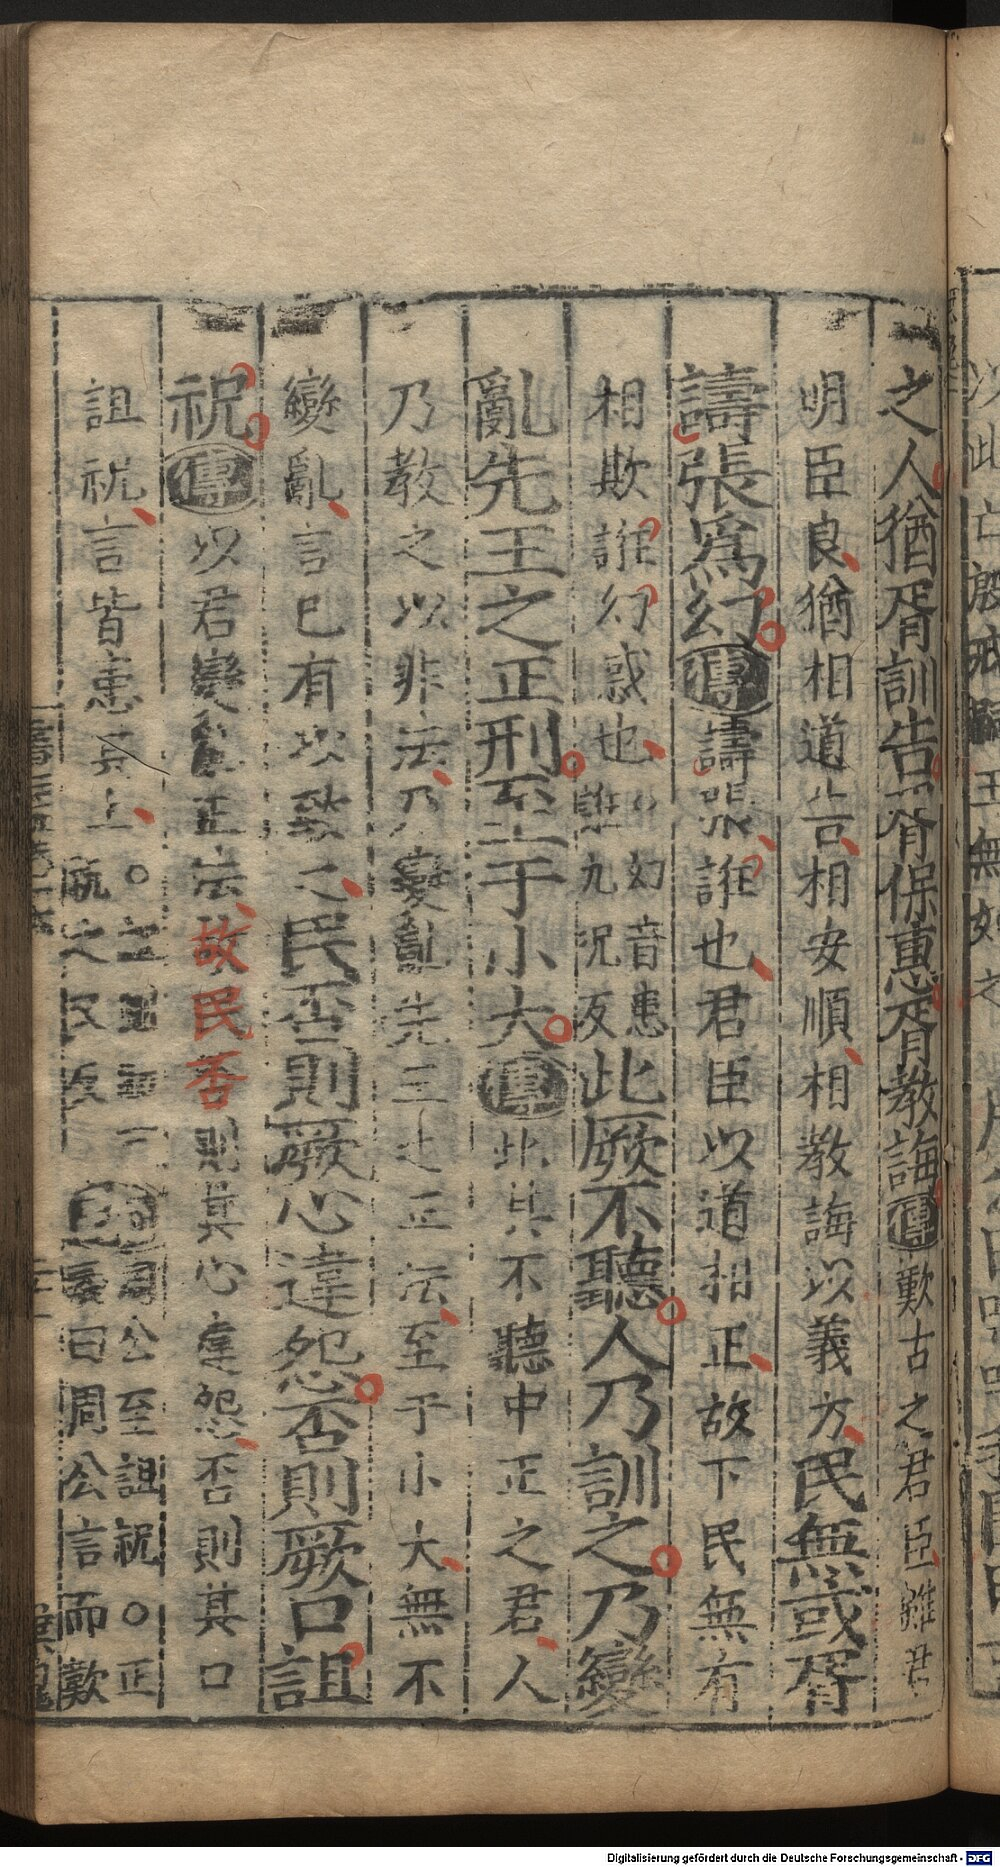 之人猶胥訓告胥保惠胥教誨傳歎古之君臣雖君
明臣良猶相道告相安順相教誨以義方民無或胥
譸張爲幻傳譸張誑也君臣以道相正故下民無有
相欺誑幻惑也幻音患
誑九況反此厥不聽人乃訓之乃變
亂先王之正刑至于小大傳此其不聽中正之君人
乃教之以非法乃變亂先王之正法至于小大無不
變亂言已有以致之民否則厥心違怨否則厥口詛
祝傳以君變亂正法故民否則其心違怨否則其口
詛祝言皆患其上
公至詛祝〇正
曰周公言而歎
Digitalisierung gefördert durch die Deutsche Forschungsgemeinschaft - DFG